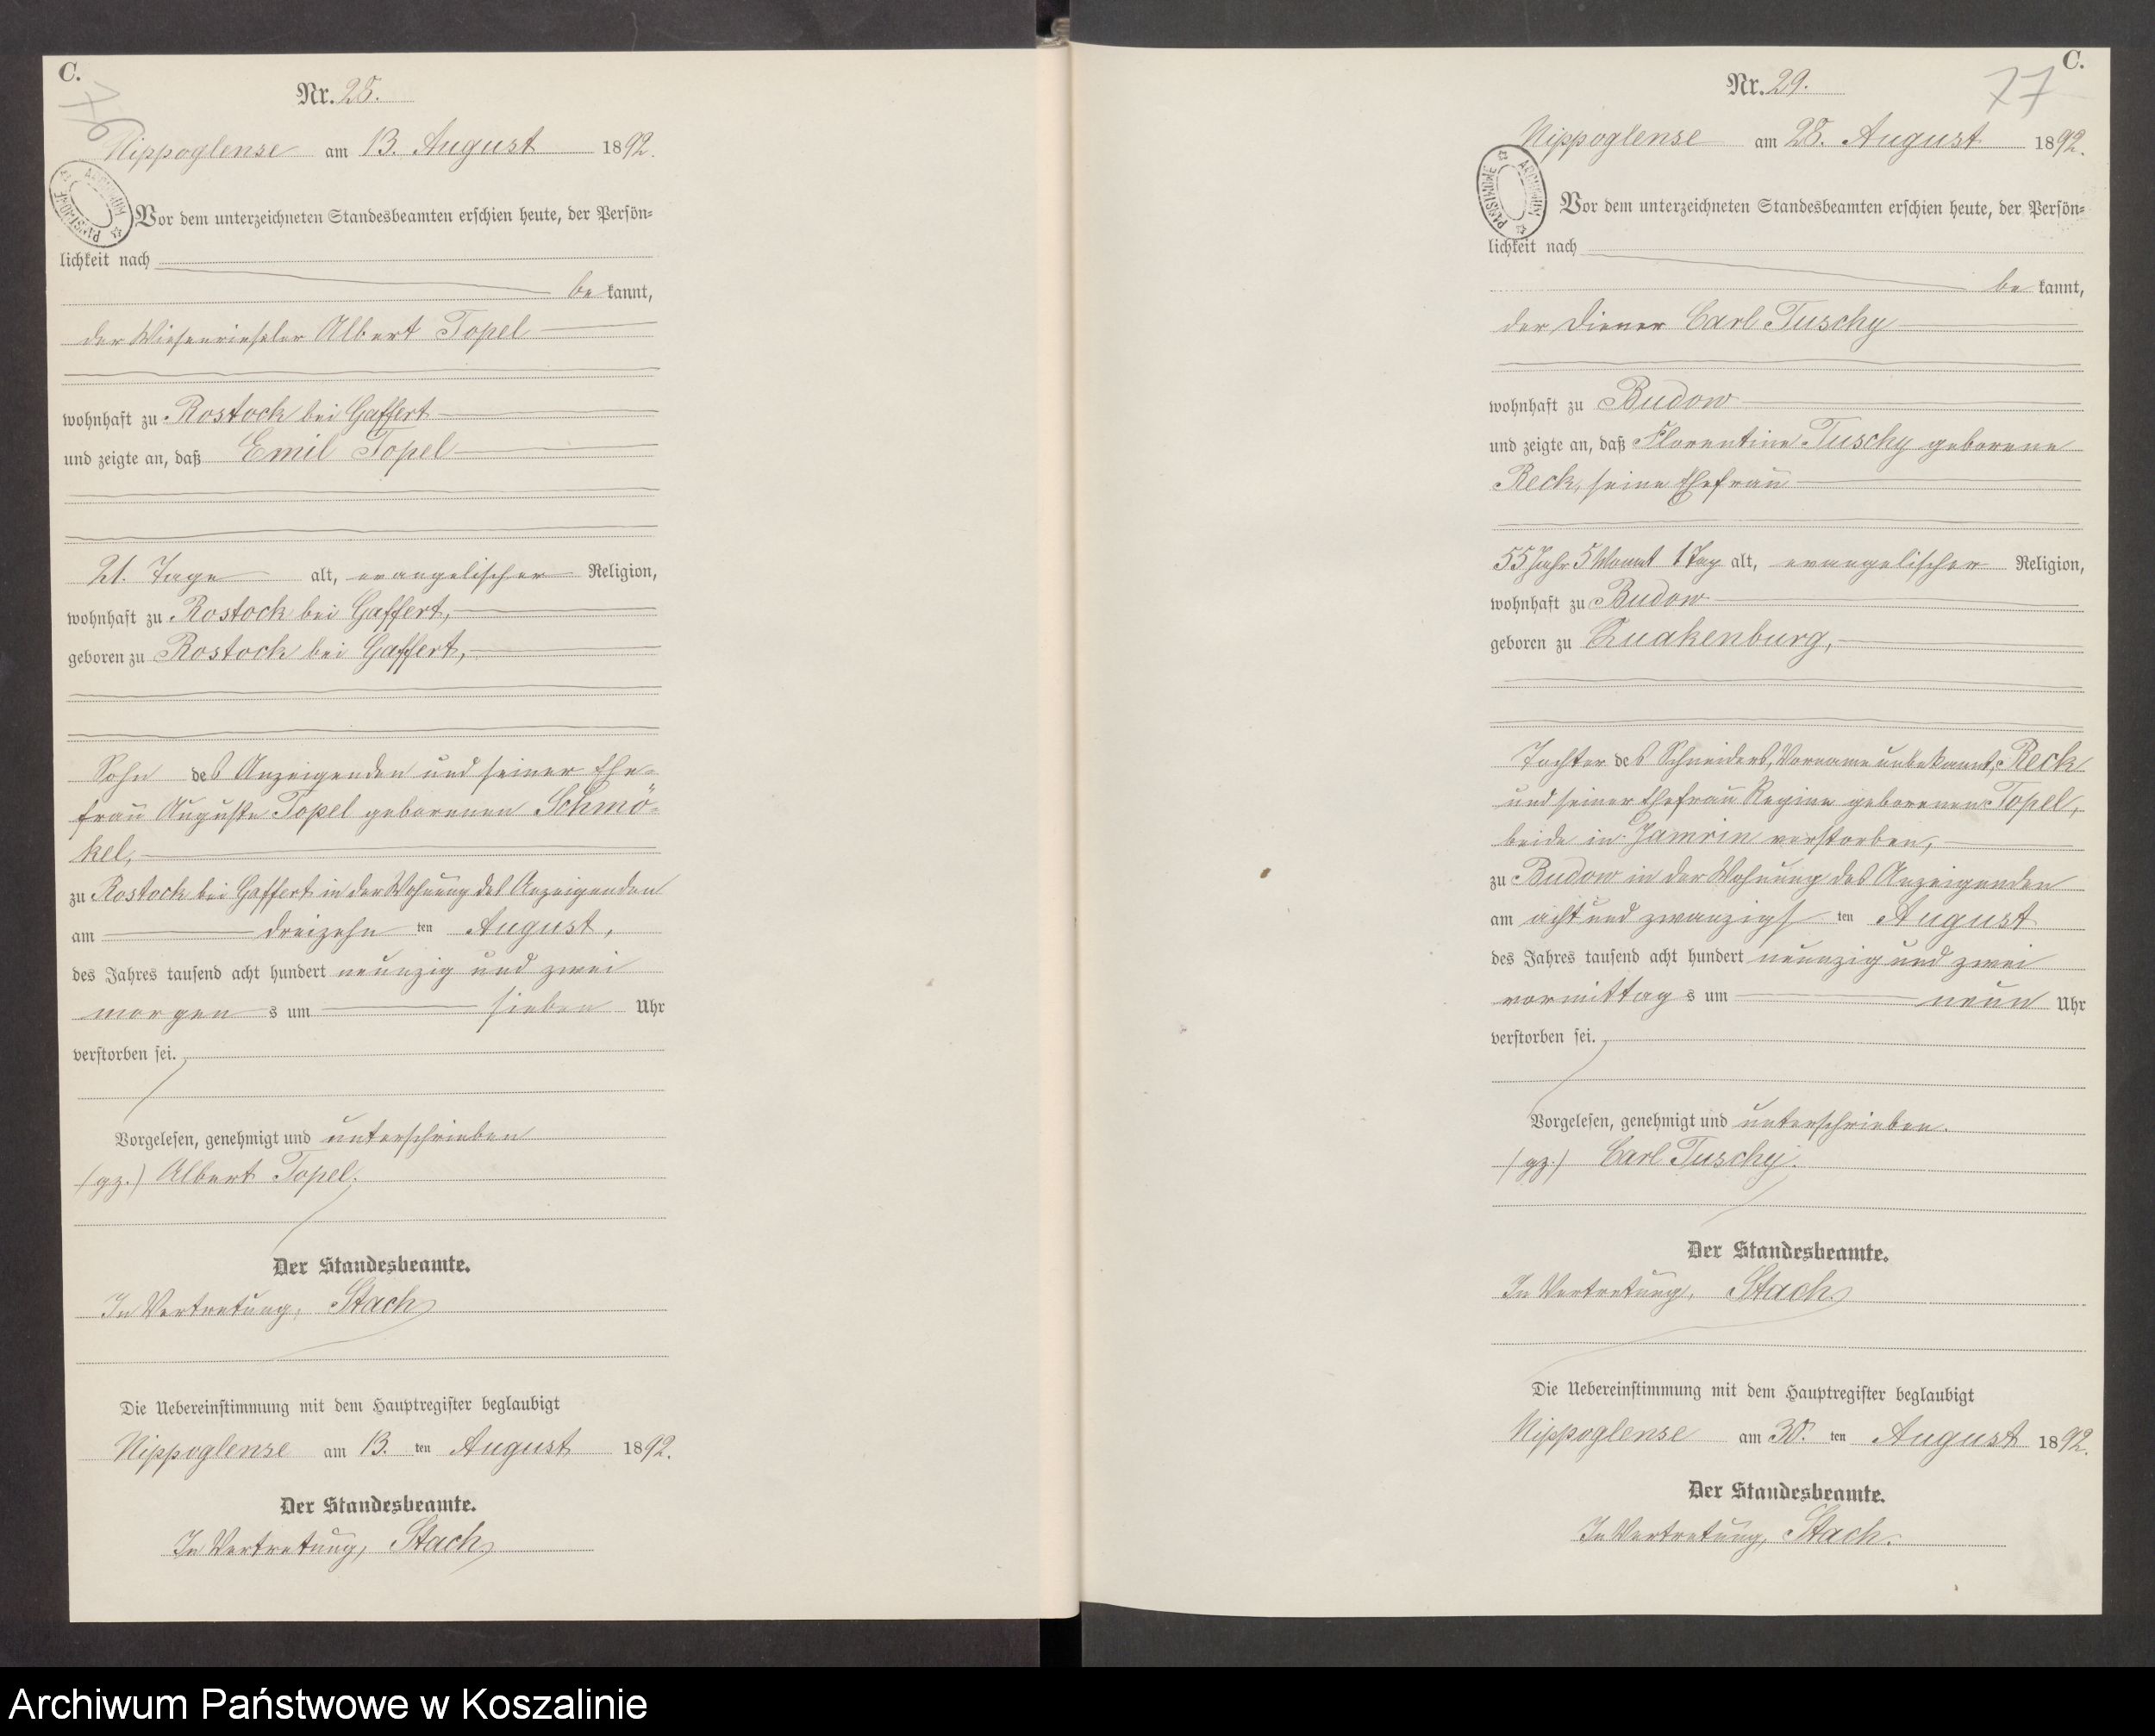 C.
76
Nr. 28.
Nippoglense am 13. August 1892.
ARCHIWUM PAŃSTWOWE
Vor dem unterzeichneten Standesbeamten erschien heute, der Persön=
lichkeit nach
be kannt,
der Wiesenrieseler Albert Topel
wohnhaft zu Rostock bei Gaffert
und zeigte an, daß Emil Topel
21. Tage alt, evangelischer Religion,
wohnhaft zu Rostock bei Gaffert,
geboren zu Rostock bei Gaffert,
Sohn des Anzeigenden und seiner Ehe=
frau Auguste Topel geborenen Schmö=
kel,
zu Rostock bei Gaffert in der Wohnung des Anzeigenden
am dreizehn ten August,
des Jahres tausend acht hundert neunzig und zwei
morgen s um sieben Uhr
verstorben sei.
Vorgelesen, genehmigt und unterschrieben
(gz.) Albert Topel.
Der Standesbeamte.
In Vertretung, Stach
Die Uebereinstimmung mit dem Hauptregister beglaubigt
Nippoglense am 13. ten August 1892.
Der Standesbeamte.
In Vertretung, Stach
C.
77
Nr. 29.
Nippoglense am 28. August 1892.
ARCHIWUM PAŃSTWOWE
Vor dem unterzeichneten Standesbeamten erschien heute, der Persön=
lichkeit nach
be kannt,
der Diener Carl Tuschy
wohnhaft zu Budow
und zeigte an, daß Florentine Tuschy geborene
Reck, seine Ehefrau
55 Jahr 5 Monat 1 Tag alt, evangelischer Religion,
wohnhaft zu Budow
geboren zu Quakenburg,
Tochter des Schneiders, Vorname unbekannt, Reck
und seiner Ehefrau Regine geborenen Topel,
beide in Jamrin verstorben,
zu Budow in der Wohnung des Anzeigenden
am acht und zwanzigs ten August
des Jahres tausend acht hundert neunzig und zwei
vormittag s um neun Uhr
verstorben sei.
Vorgelesen, genehmigt und unterschrieben.
(gz.) Carl Tuschy.
Der Standesbeamte.
In Vertretung, Stach
Die Uebereinstimmung mit dem Hauptregister beglaubigt
Nippoglense am 30. ten August 1892.
Der Standesbeamte.
In Vertretung, Stach.
Archiwum Państwowe w Koszalinie